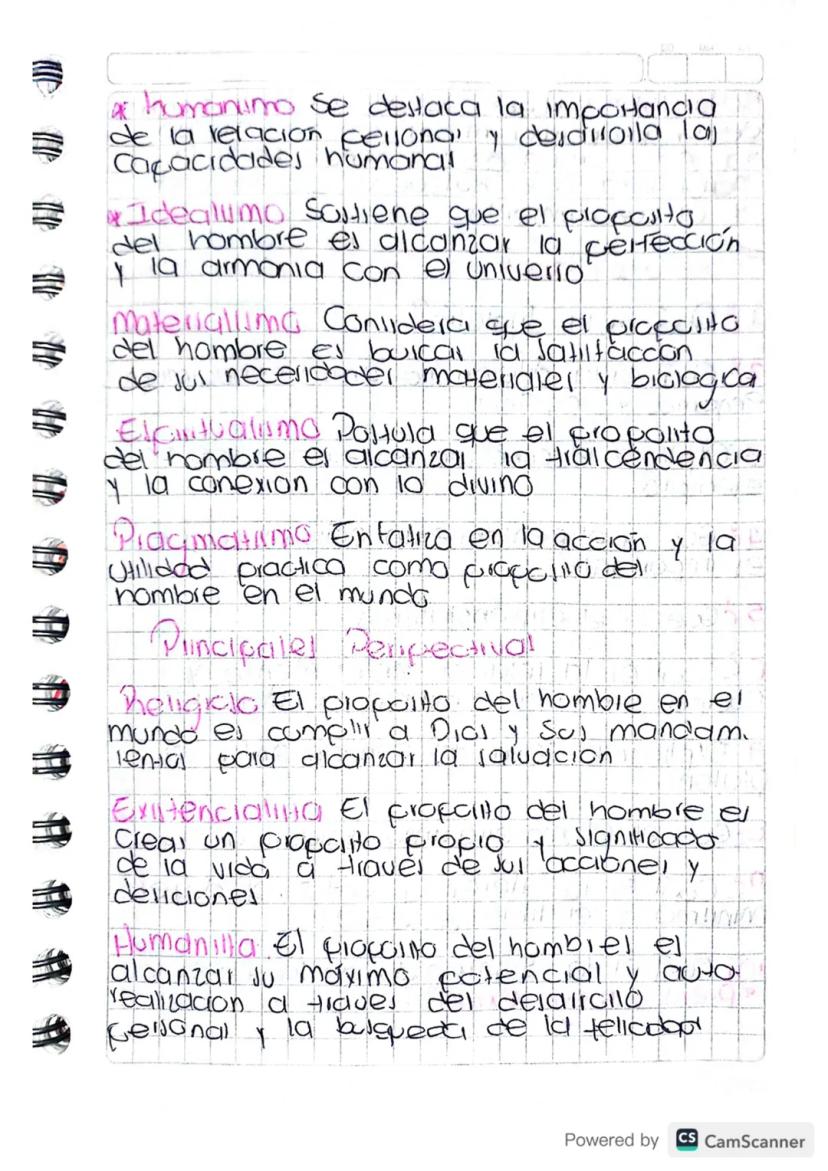 * humanismo Se destaca la importancia
de la relacion personal y desarrolla las
capacidades humanas
* Idealismo Sostiene que el proposito
del hombre es alcanzar la perfección
y la armonia con el universo
Materialismo Considera que el proposito
del hombre es buscar la satisfacción
de sus necesidades materiales y biologica
Espiritualismo Postula que el proposito
del hombre es alcanzar la trascendencia
y la conexion con lo divino
Pragmatismo Enfatiza en la acción y la
utilidad practica como proposito del
hombre en el mundo
Principales Perspectivas
Religiosa El proposito del hombre en el
mundo es cumplir a Dios y sus mandam.
ientos para alcanzar la salvacion
Existencialista El proposito del hombre es
Crear un proposito propio y significado
de la vida a través de sus acciones y
desiciones
Humanista El proposito del hombres es
alcanzar su máximo potencial y auto
realizacion a traves del desarrollo
personal y la busqueda de la
Powered by CS CamScanner